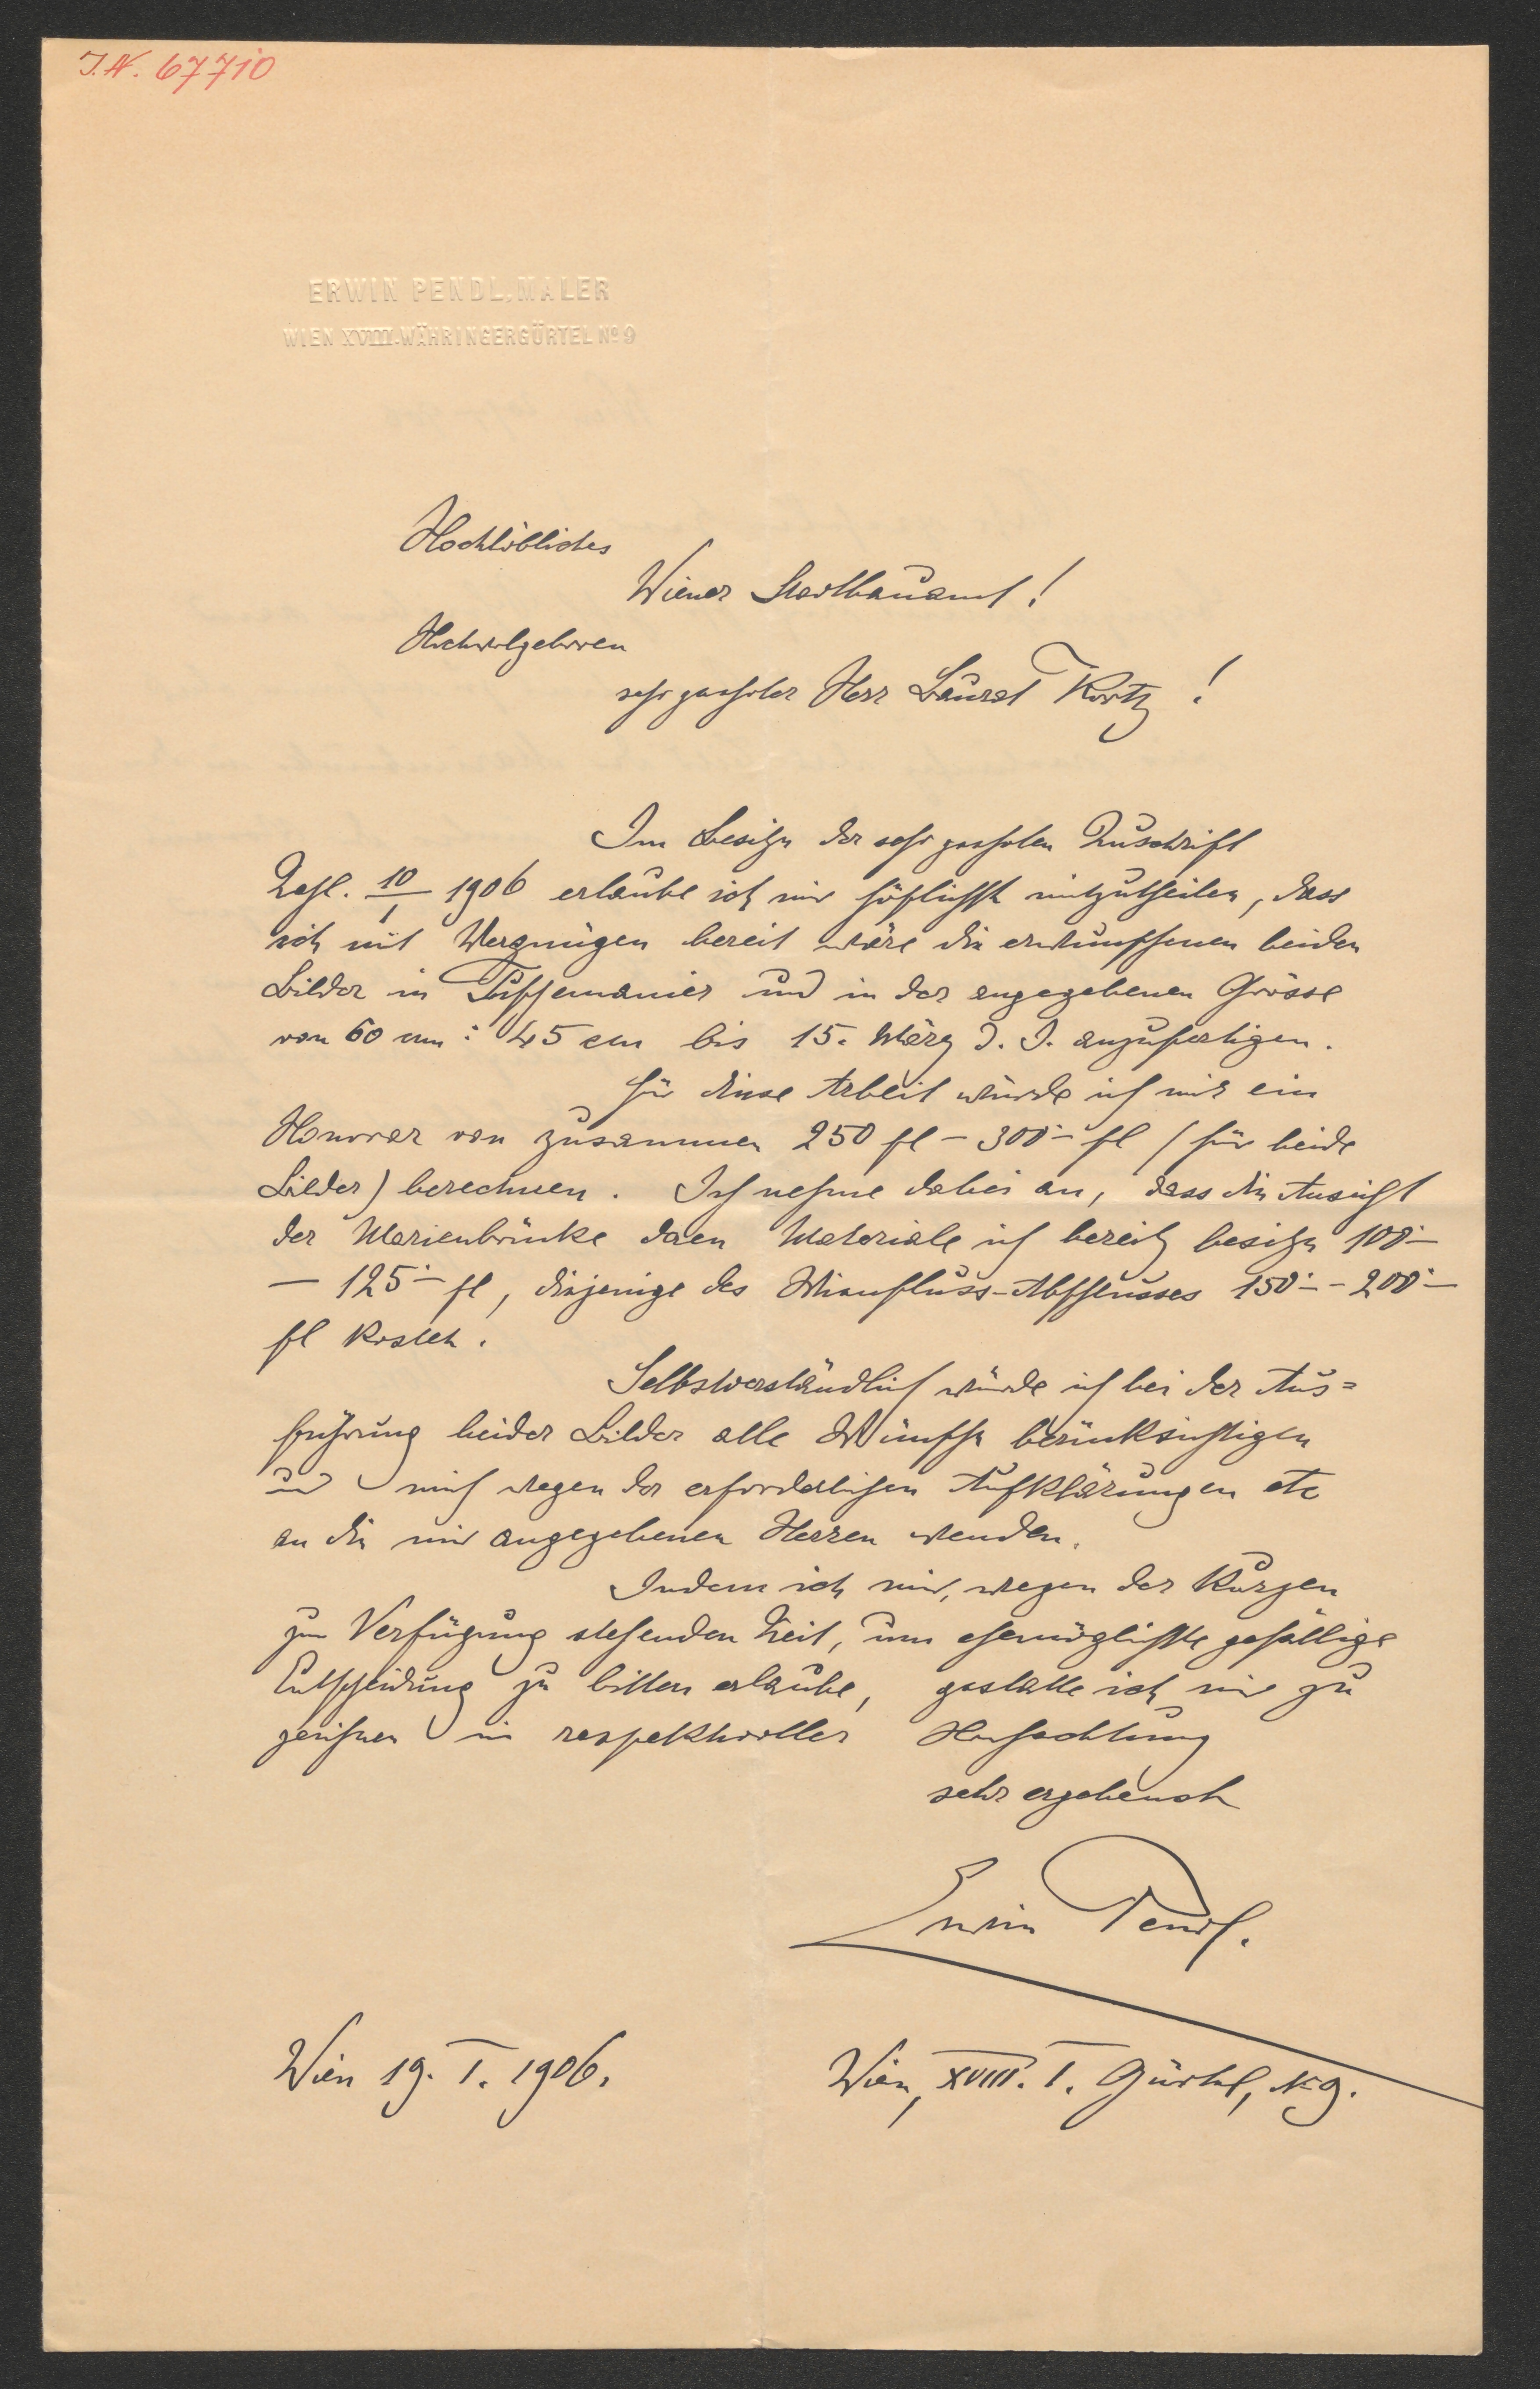 I. N. 67710
ERWIN PENDL, MALER
WIEN XVIII. WÄHRINGERGÜRTEL No 9
Hochlöbliches
Wiener Stadtbauamt!
Hochwolgeboren
sehr geehrter Herr Baurat Kortz!
Im Besitze der sehr geehrten Zuschrift
10/I 1906 erlaube ich mir höflichst mitzutheilen, dass
ich mit Vergnügen bereit wäre die erwünschten beiden
Bilder in Tuschemanier und in der angegebenen Grösse
von 60 cm : 45 cm bis 15. März d. J. anzufertigen.
Für diese Arbeit würde ich mir ein
Honorar von zusammen 250 fl – 300·– fl (für beide
Bilder) berechnen. Ich nehme dabei an, dass die Ansicht
der Marienbrücke deren Materiale ich bereits besitze 100·–
– 125·– fl, diejenige des Wienfluss-Abschlusses 150·– – 200·–
fl kosten.
Selbstverständlich würde ich bei der Aus=
führung beider Bilder alle Wünsche berücksichtigen
und mich wegen der erforderlichen Aufklärungen etc
an die mir angegebenen Herren wenden.
Indem ich mir, wegen der kurzen
zur Verfügung stehenden Zeit, um ehemöglichste gefällige
Entscheidung zu bitten erlaube, gestatte ich mir zu
zeichnen in respektvoller Hochachtung
sehr ergebenst
Erwin Pendl.
Wien 19. I. 1906.
Wien, XVIII. I. Gürtel, No 9.